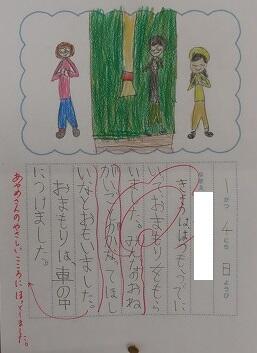 1がつ4にち日ようび
きょうは、はつもうでに
いっておまもりをもら
いました。みんなのおね
がいごとがかなってほし
いなとおもいました。
おまもりは、車の中
につけました。
あやめさんのやさしいこころにほっとしました。